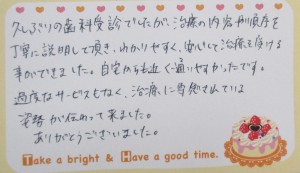 久しぶりの歯科受診でしたが、治療の内容や順序を
丁寧に説明して頂き、わかりやすく、安心して治療を受ける
事ができました。自宅からも近く通いやすかったです。
過度なサービスもなく、治療に専念されている
姿勢が伝わって来ました。
ありがとうございました。
Take a bright & Have a good time.